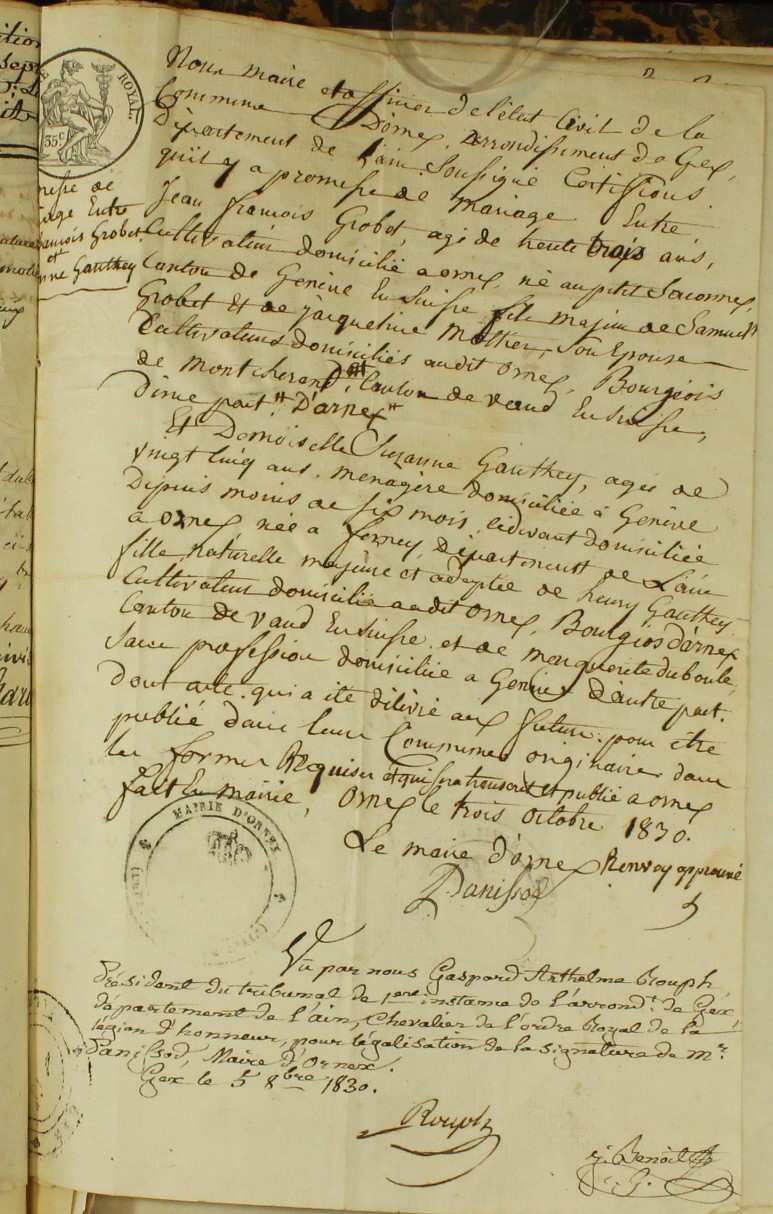 ROYAL.
35c
Nous maire et officier de l'état Civil de la
Commune D'ornex, arrondissement de Gex,
Département de l'ain, Soussigné Certiffions
qu'il y a promesse de mariage Entre
Jean françois Grobet, agé de trente trois ans,
Cultivateur domicilié a ornex, né au petit Saconnex,
Canton de Genève En Suisse, fils majeur de Samuel
Grobet Et de Jacqueline Mother, Son Epouse
Cultivateurs domiciliés audit Ornex, Bourgeois
de montcherand, et Canton de vaud En Suisse,
D'une part. D'arnex
Et Demoiselle Suzanne Gauthey, agée de
vingt cinq ans, menagère domiciliée à Genève
Depuis moins de six mois, cidevant domiciliée
a ornex née a ferney, Département de L'ain
fille naturelle majeure et adoptée de henry Gauthey
Cultivateur domicilié audit ornex, Bourgeois d'arnex
Canton de vaud En Suisse, et de marguerite duboule,
Sans profession domiciliée a Genève D'autre part.
Dont acte qui a été délivré aux futurs pour être
publié dans leurs Communes originaires dans
les formes Requises et publié a ornex
fait En mairie, Ornex le trois octobre 1830.
Le maire d'ornex Renvoy approuvé
Danissod
MAIRIE D'ORNEX
messe de
riage Entre
françois Grobet
et
nne Gauthey
Vû par nous Gaspard Anthelme Rouph,
Président du tribunal de 1ere instance de l'arrondt. de Gex,
département de l'ain, Chevalier de l'ordre Royal de la
légion d'honneur, pour légalisation de la signature de mr.
Danissod, Maire d'Ornex.
Gex le 5 8bre 1830.
Rouph
Benoit